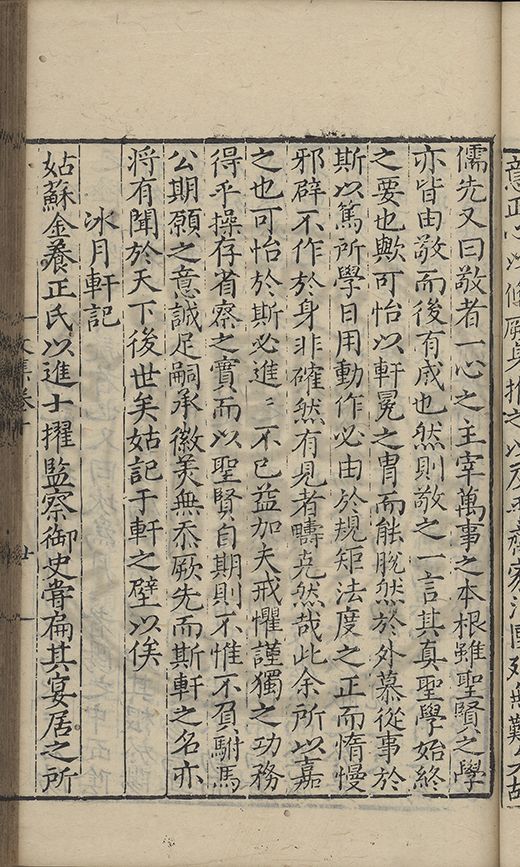 儒先又曰敬者一心之主宰萬事之本根雖聖賢之學
亦皆由敬而後有成也然則敬之一言其真聖學始終
之要也歟可怡以軒冕之胄而能脫然於外慕從事於
斯以篤所學日用動作必由於規矩法度之正而惰慢
邪辟不作於身非確然有見者疇克然哉此余所以嘉
之也可怡於斯必進〻不已益加夫戒懼謹獨之功務
得乎操存省察之實而以聖賢自期則不惟不負駙馬
公期願之意誠足嗣承徽美無忝厥先而斯軒之名亦
將有聞於天下後世矣姑記于軒之壁以俟
冰月軒記
姑蘇金養正氏以進士擢監察御史甞扁其宴居之所